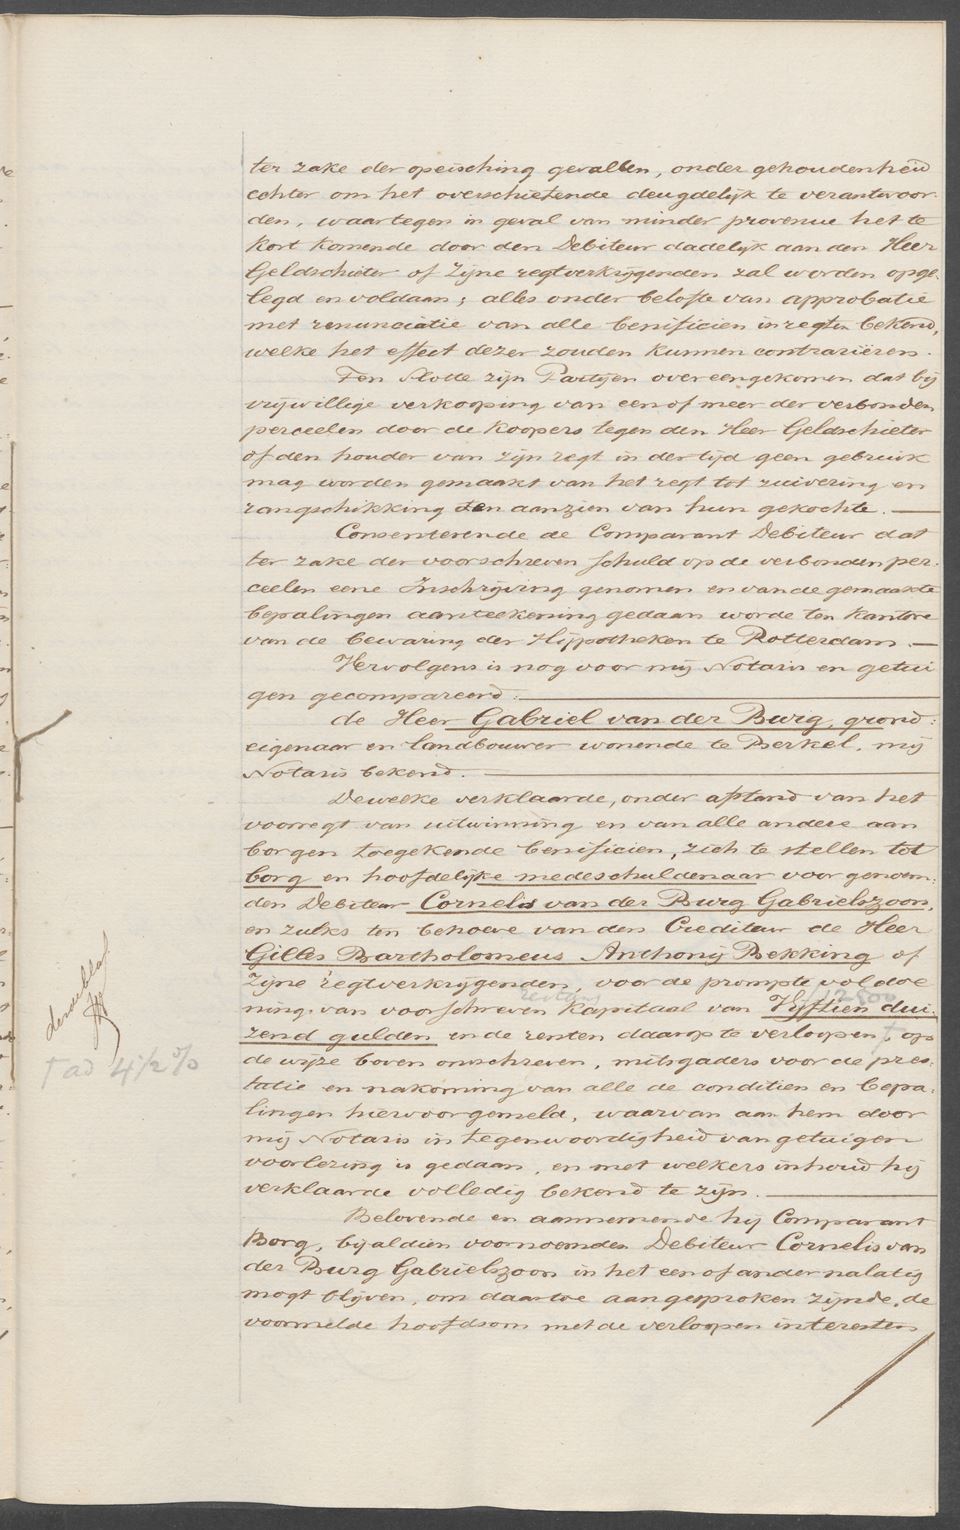 ter zake der opeisching gevallen, onder gehoudenheid
echter om het overschietende deugdelijk te verantwoor-
den, waartegen in geval van minder provenue het te
kort komende door den Debiteur dadelijk aan den Heer
Geldschieter of Zijne regtverkrijgenden zal worden opge-
legd en voldaan; alles onder belofte van approbatie
met renunciatie van alle benificien in regten bekend,
welke het effect dezer zouden kunnen contrariëren.
Ten Slotte zijn Partijen overeengekomen dat bij
vrijwillige verkooping van een of meer der verbonden
perceelen door de koopers tegen den Heer Geldschieter
of den houder van zijn regt in der tijd geen gebruik
mag worden gemaakt van het regt tot zuivering en
rangschikking ten aanzien van hun gekochte.
Consenterende de Comparant Debiteur dat
ter zake der voorschreven schuld op de verbonden per-
ceelen eene Inschrijving genomen en van de gemaakte
bepalingen aanteekening gedaan worde ten kantore
van de bewaring der Hijpotheken te Rotterdam.
Hervolgens is nog voor mij Notaris en getui
gen gecompareerd:
de Heer Gabriel van der Burg, grond:
eigenaar en landbouwer wonende te Berkel, mij
Notaris bekend.
Dewelke verklaarde, onder afstand van het
voorregt van uitwinning en van alle andere aan
borgen toegekende benificien, zich te stellen tot
borg en hoofdelijke medeschuldenaar voor genoem:
den Debiteur Cornelis van der Burg Gabrielszoon,
en zulks ten behoeve van den Crediteur de Heer
Gilles Bartholomeus Anthonij Bekking of
Zijne regtverkrijgenden, voor de prompte voldoe
12500
ning van voorschreven Kapitaal van Vijftien dui:
zend gulden en de renten daarop te verloopen, op
de wijze boven omschreven, mitsgaders voor de pres:
tatie en nakoming van alle de conditien en bepa:
lingen hiervoorgemeld, waarvan aan hem door
mij Notaris in tegenwoordigheid van getuigen
voorlezing is gedaan, en met welkers inhoud hij
verklaarde volledig bekend te zijn.
Belovende en aannemende hij Comparant
Borg, bijaldien voornoemden Debiteur Cornelis van
der Burg Gabrielszoon in het een of ander nalatig
mogt blijven, om daartoe aangesproken zijnde, de
voormelde hoofdsom met de verloopen interesten
† ad 4 1/2 %